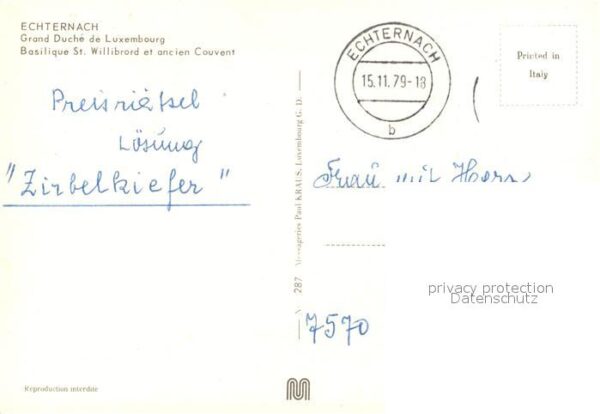 ECHTERNACH
Grand Duché de Luxembourg
Basilique St. Willibrord et ancien Couvent
Preisrätsel
Lösung
"Zirbelkiefer"
287 Messageries Paul KRAUS, Luxembourg G. D.
ECHTERNACH
15.11.79-18
b
Printed in
Italy
Frau mit Herrn
privacy protection
Datenschutz
7570
Reproduction interdite
M